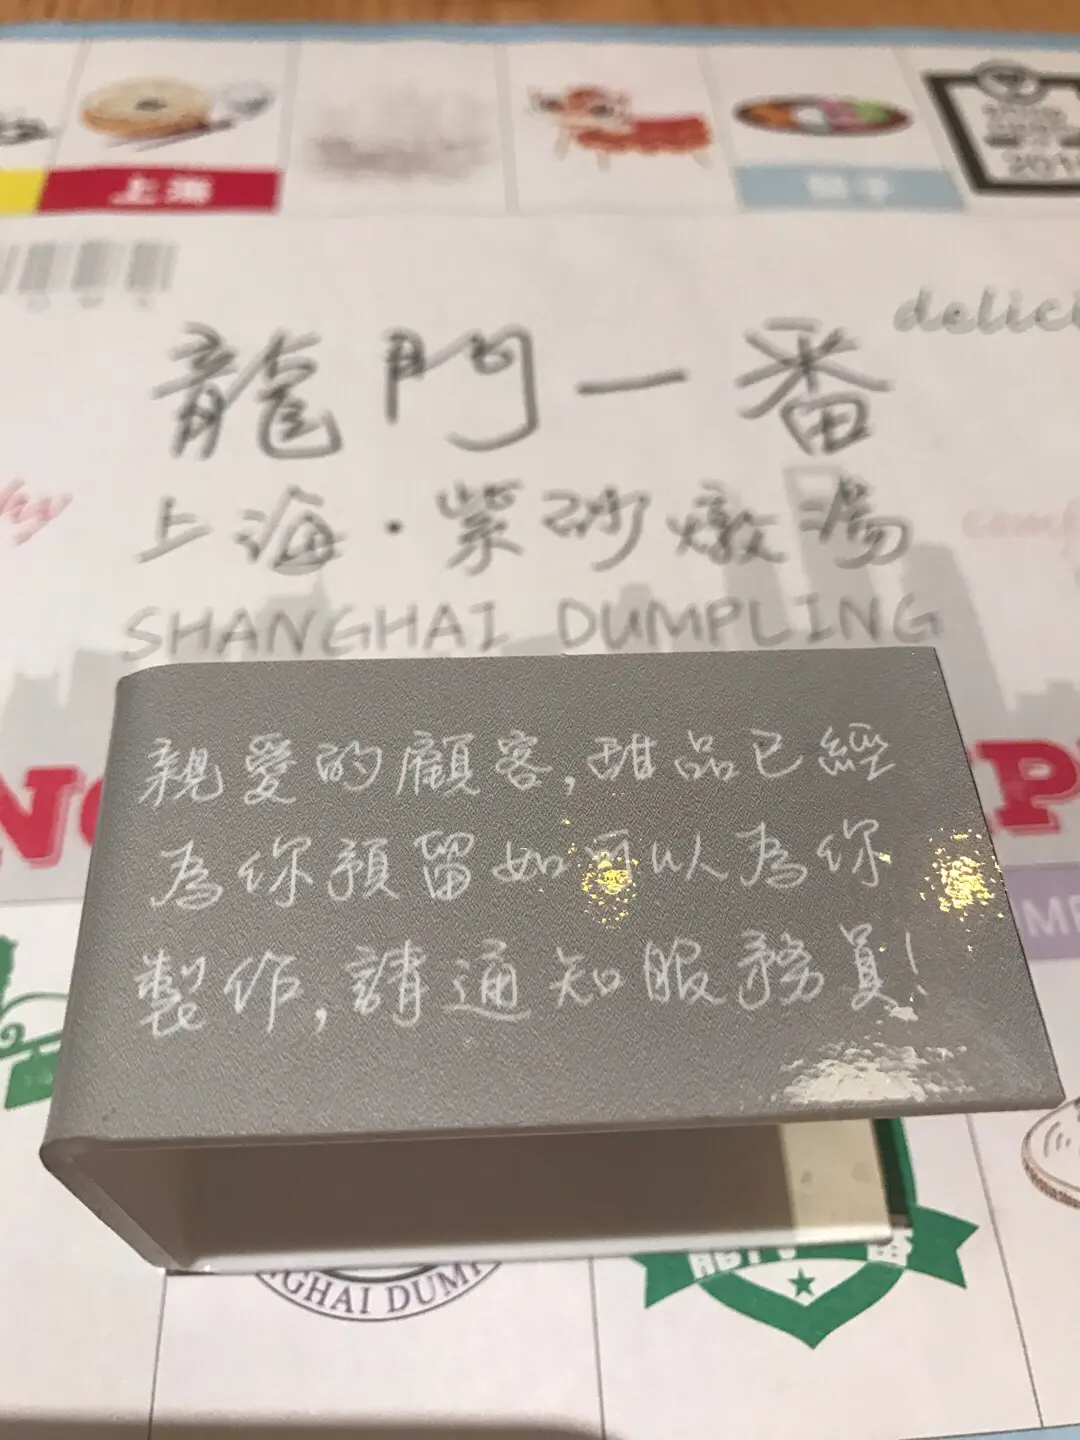 上海
201
delici
龍門一番
hy
上海·紫砂燉湯
SHANGHAI DUMPLING
親愛的顧客,甜品已經
為你預留如可以為你
製作,請通知服務員!
NG
P
MP
GHAI DUM